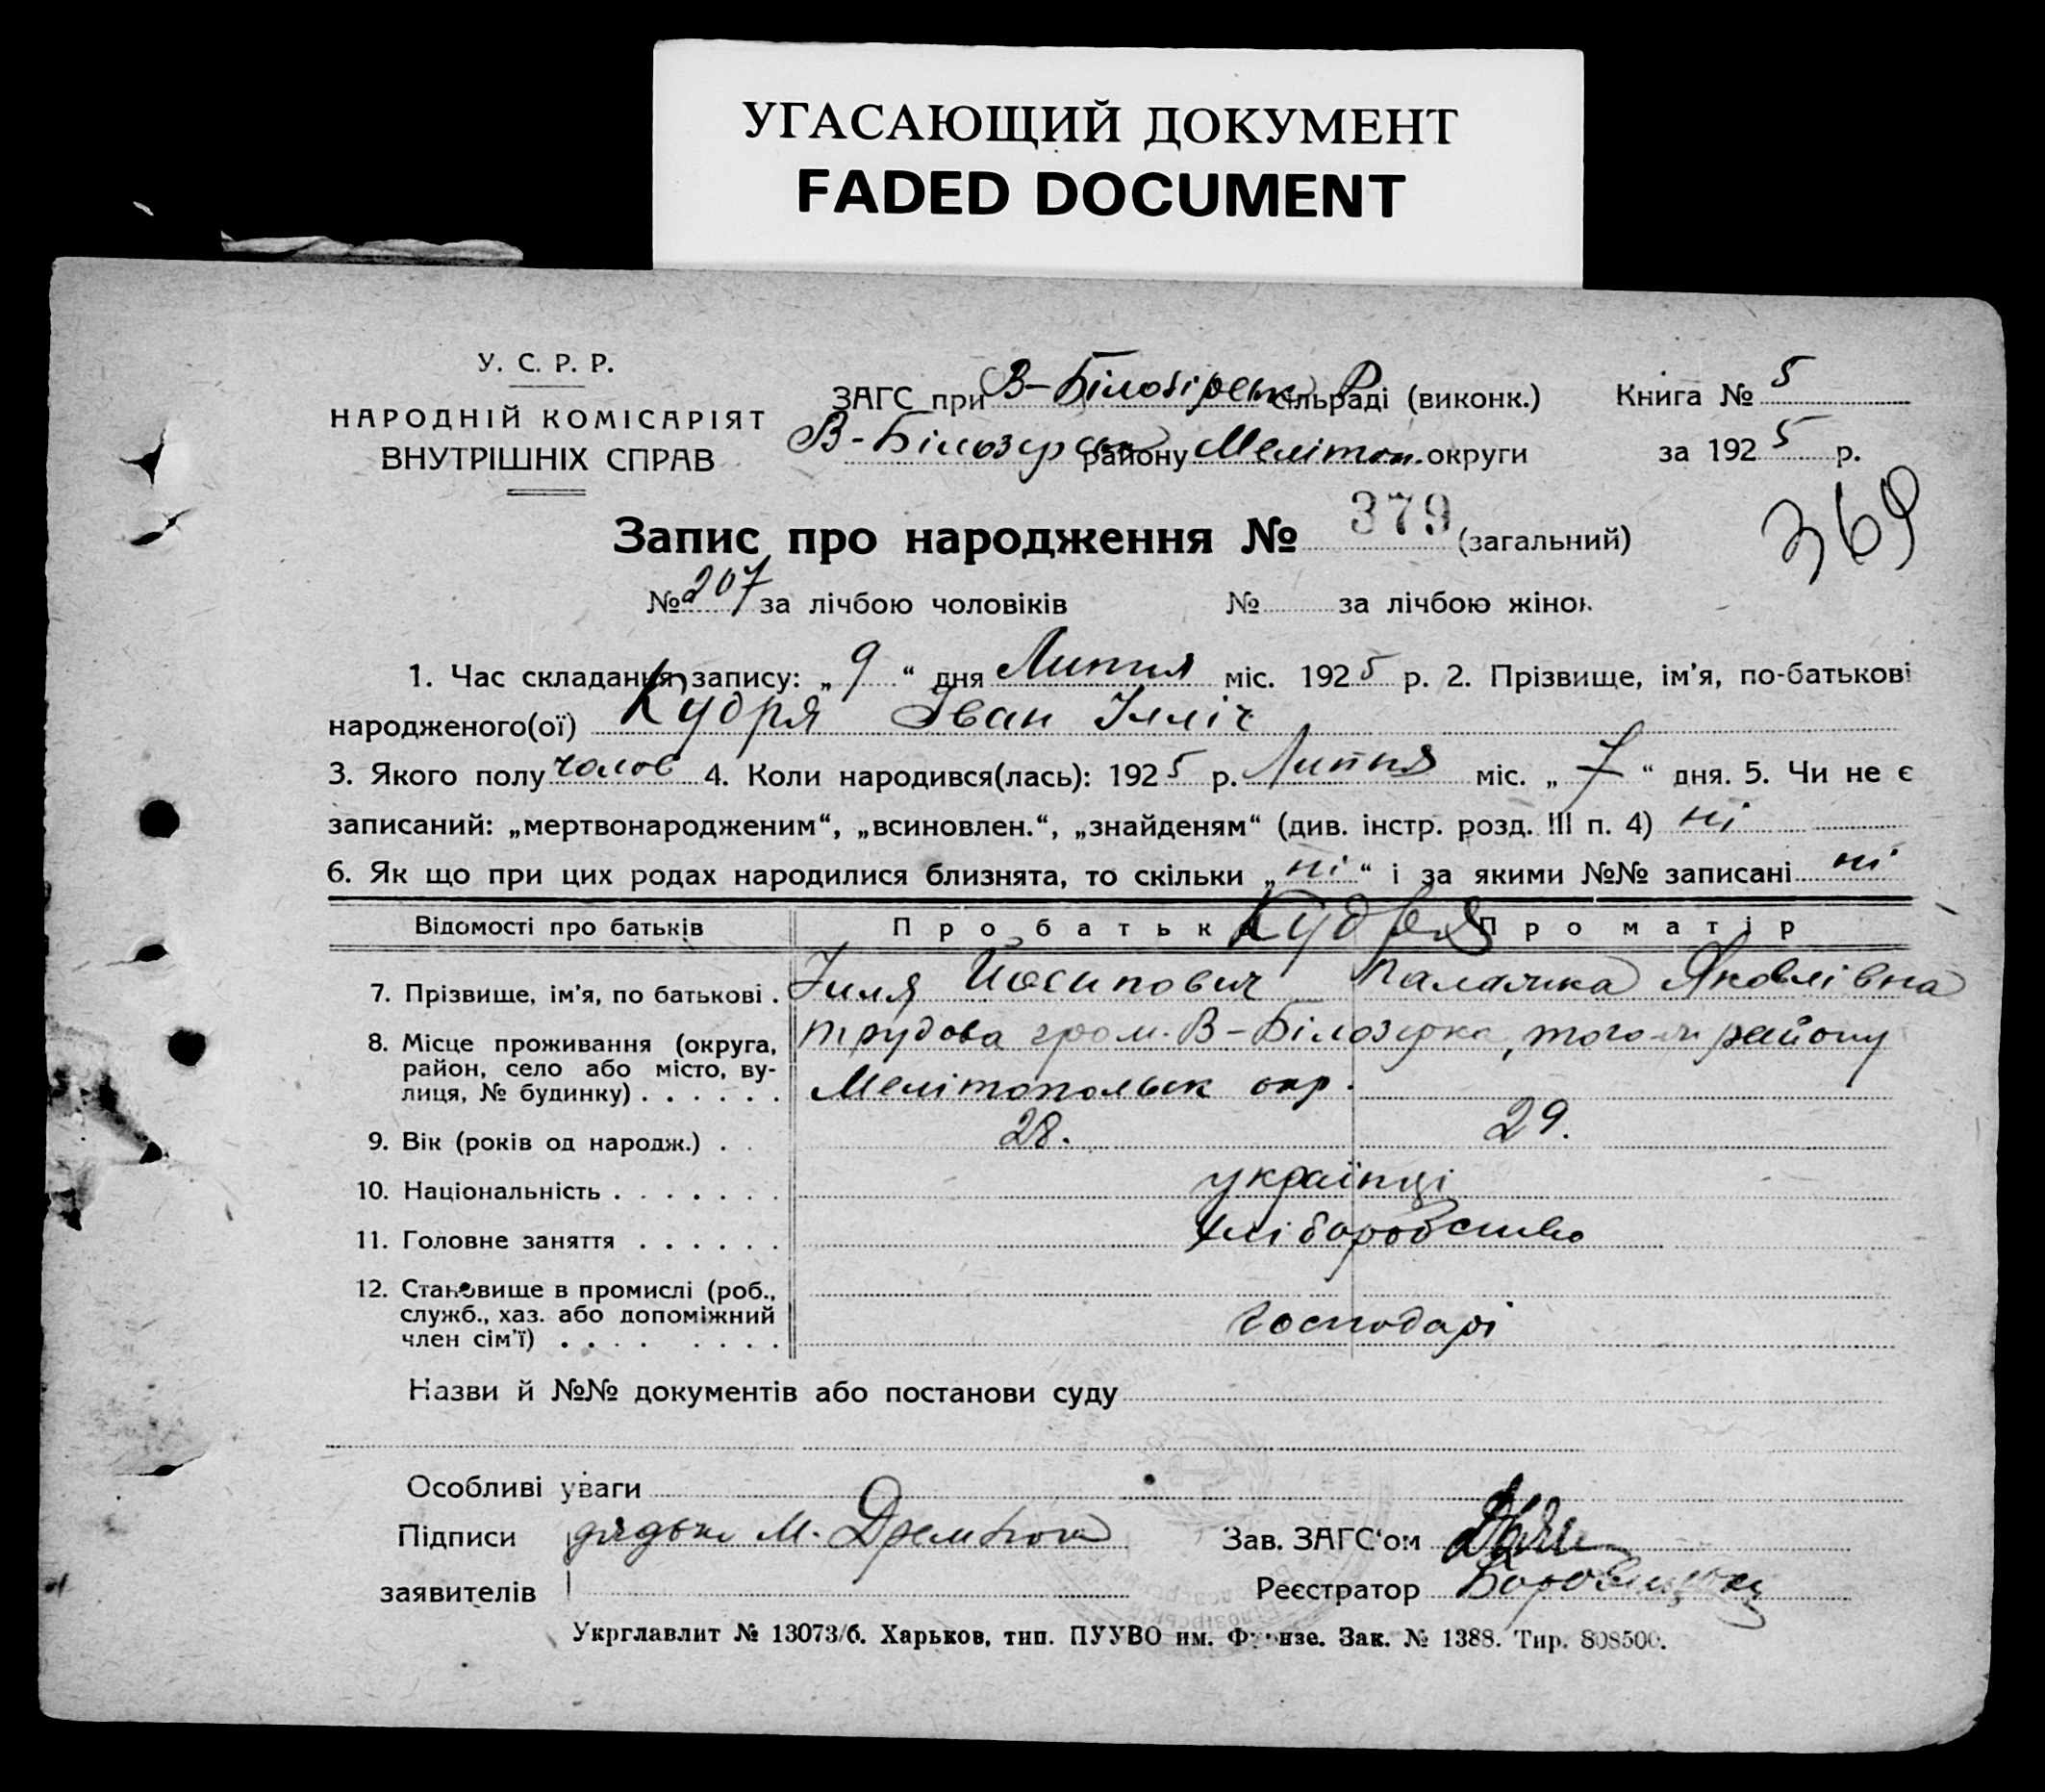 УГАСАЮЩИЙ ДОКУМЕНТ
FADED DOCUMENT
У. С. Р. Р.
НАРОДНІЙ КОМІСАРІЯТ
ВНУТРІШНІХ СПРАВ
ЗАГС при В-Білозірськ Р сільраді (виконк.)
В-Білозірськ району Мелітоп. округи
Книга № 5
за 1925 р.
369
Запис про народження № 379 (загальний)
№ 207 за лічбою чоловіків № за лічбою жінок
1. Час складання запису: „9“ дня Липня міс. 1925 р. 2. Прізвище, ім'я, по-батькові
народженого(ої) Кудря Іван Ілліч
3. Якого полу чолов 4. Коли народився(лась): 1925 р. Липня міс. „7“ дня. 5. Чи не є
записаний: „мертвонародженим“, „всиновлен.“, „знайденям“ (див. інстр. розд. III п. 4) ні
6. Як що при цих родах народилися близнята, то скільки „ні“ і за якими №№ записані ні
Відомості про батьків Про батька Про матір
Кудря
7. Прізвище, ім'я, по батькові . Ілля Йосипович Палажка Яковлівна
8. Місце проживання (округа, район, село або місто, вулиця, № будинку) . . . . . . трудова гром. В-Білозірка, того ж району
Мелітопольськ окр.
9. Вік (років од народж.) . . 28. 29.
10. Національність . . . . . . . українці
11. Головне заняття . . . . . . хліборобство
12. Становище в промислі (роб.,
служб., хаз. або допоміжний
член сім'ї) . . . . . . . . господарі
Назви й №№ документів або постанови суду
Особливі уваги
Підписи дядько М.
заявителів
Зав. ЗАГС'ом
Реєстратор
Укрглавлит № 13073/б. Харьков, тип. ПУУВО им. Фрунзе. Зак. № 1388. Тир. 808500.